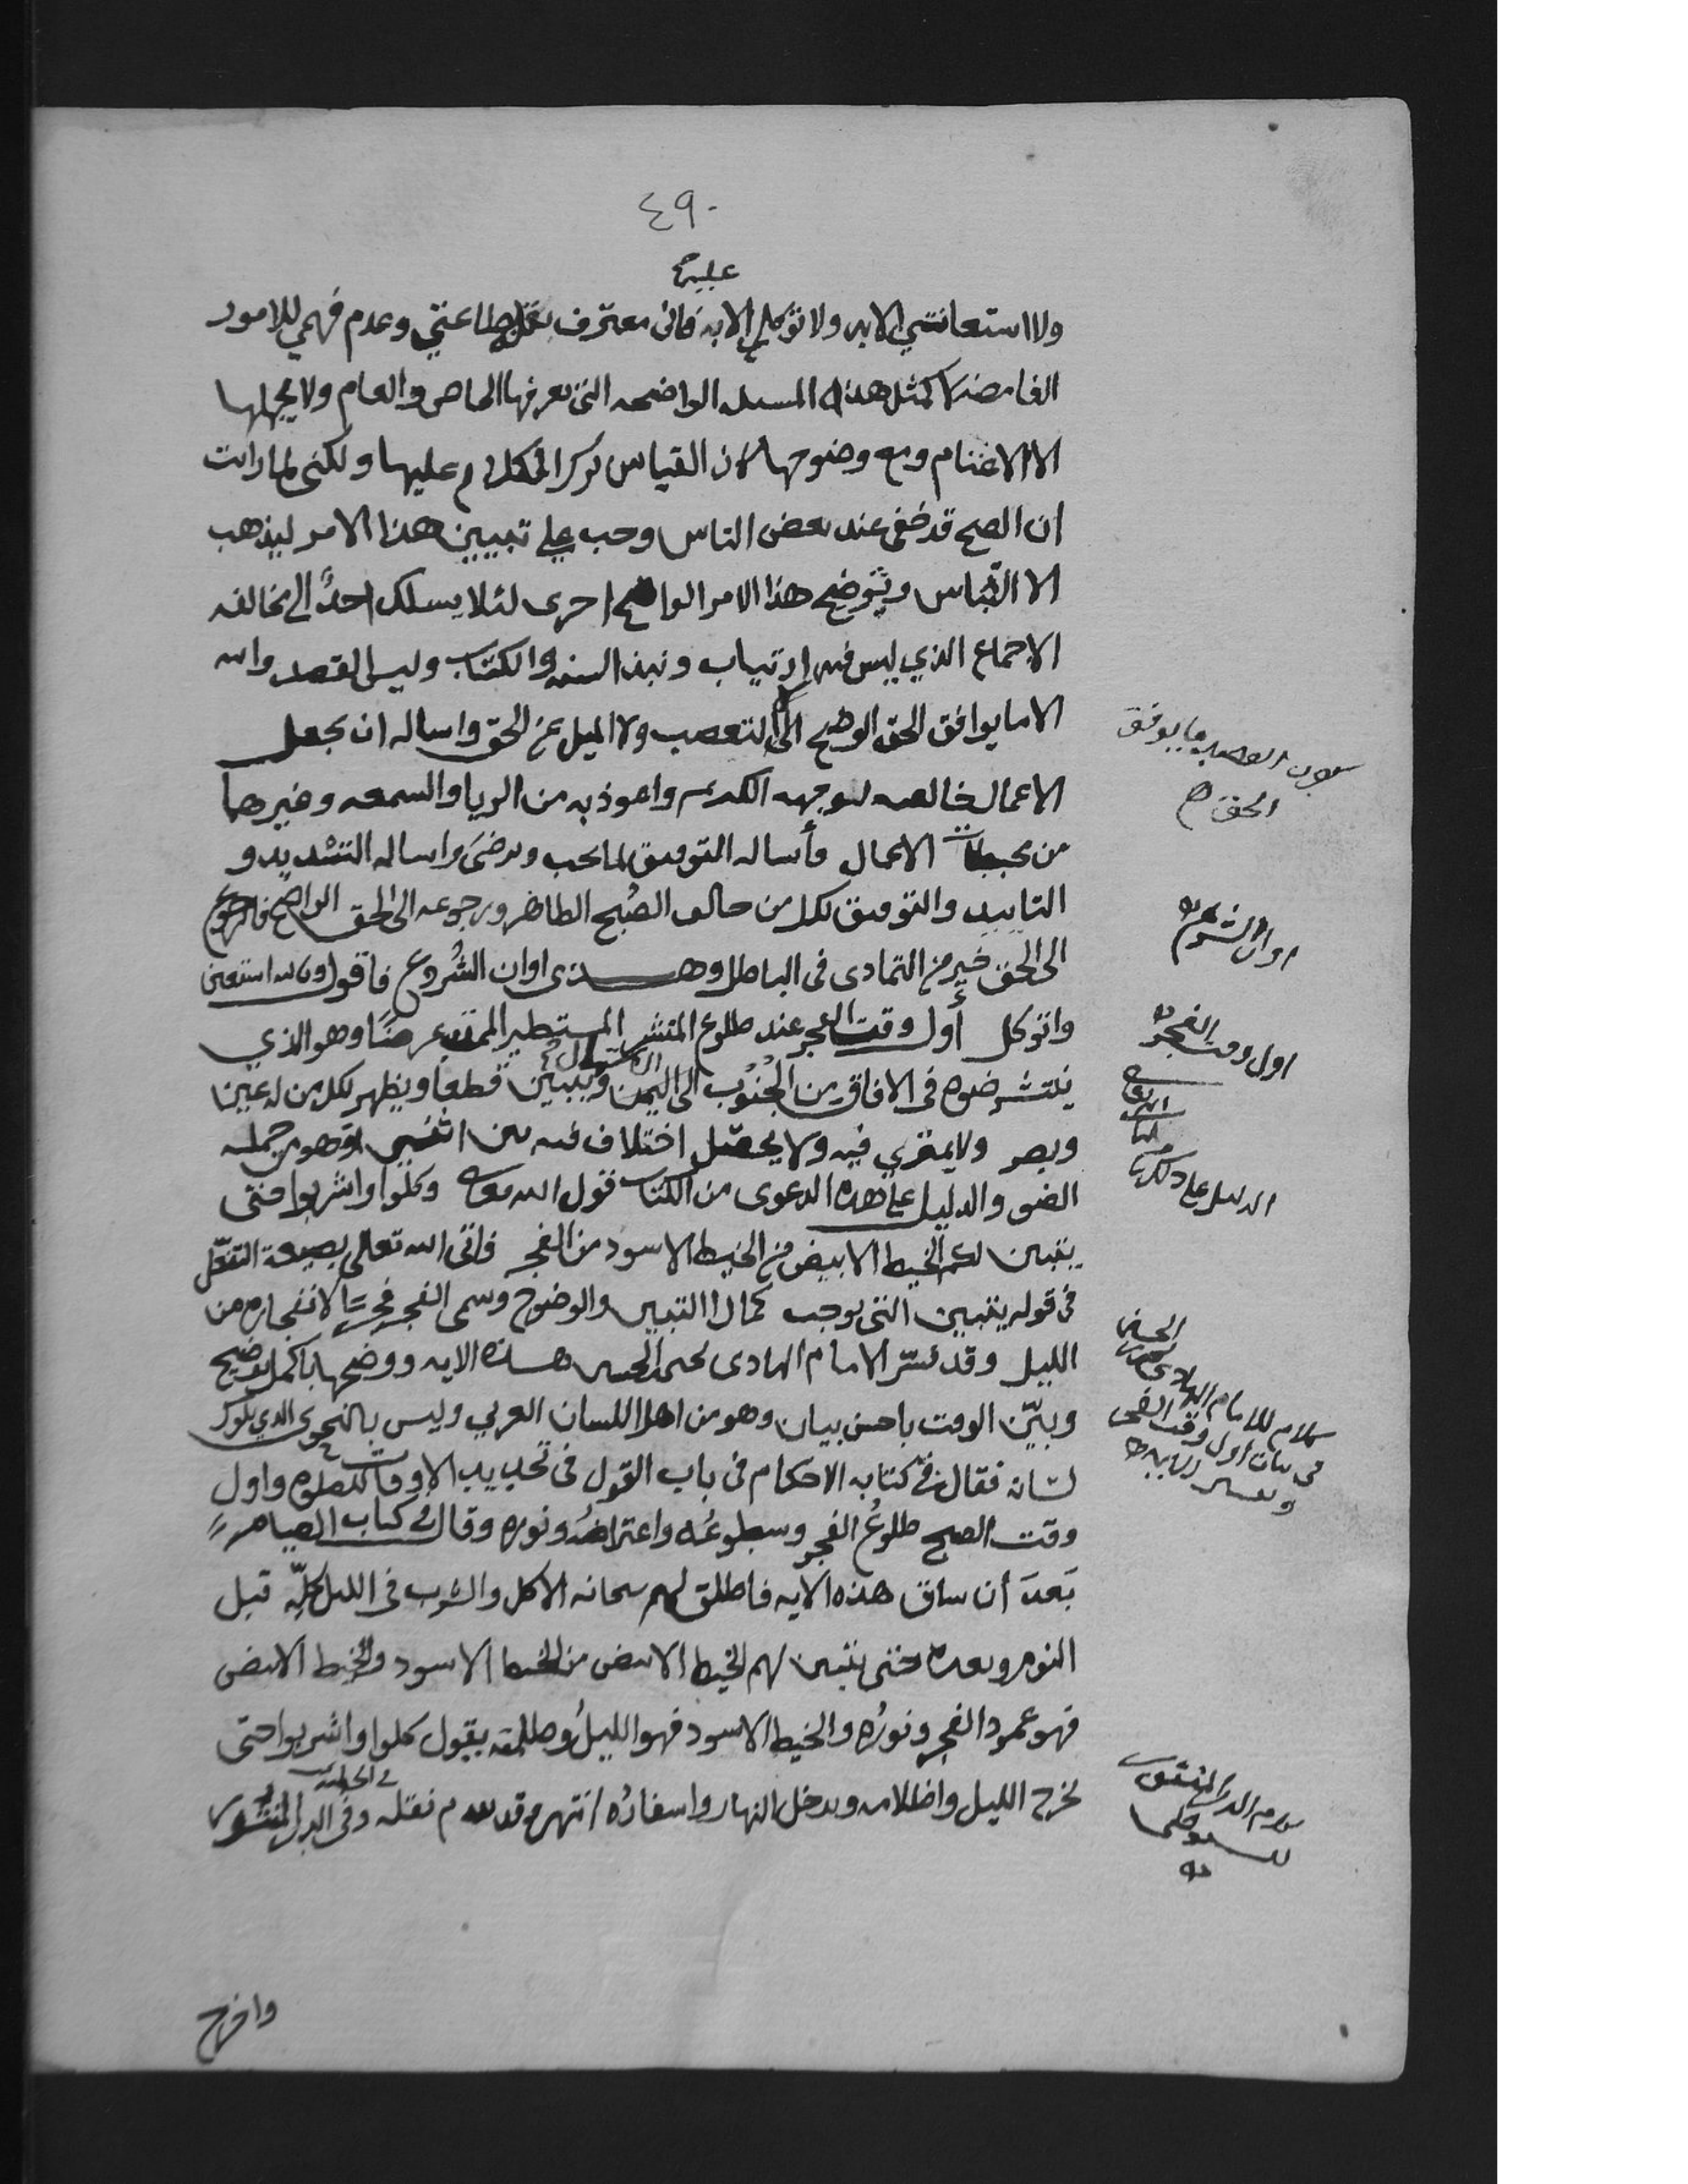 ٤٩٠
عليه
ولا استعانتي الا به ولا توكلي الا به فاني معترف بقلة بضاعتي وعدم فهمي للامور
الغامضه لا كمثل هذه المسله الواضحه التي يعرفها الخاص والعام ولا يجهلها
الا الاغتام ومع وضوحها كان القياس ترك الكلام عليها ولكني لما رايت
ان الصبح قد خفي عند بعض الناس وجب علي تبيين هذا الامر ليذهب
الالتباس وتوضيح هذا الامر الواضح احرى لئلا يسلك احدٌ الى مخالفه
الاجماع الذي ليس فيه ارتياب ونبذ السنه والكتاب وليس القصد والله
الا ما يوافق الحق الواضح لا التعصب ولا الميل عن الحق واساله ان يجعل
الاعمال خالصه لوجهه الكريم واعوذ به من الريا والسمعه وغيرهما
من محبطات الاعمال وأساله التوفيق لما يحب ويرضى واساله التسديد و
التاييد والتوفيق لكل من خالف الصُبح الظاهر ورجوعه الى الحق الواضح فالرجوع
الى الحق خير من التمادى فى الباطل وهذى اوان الشُروع فاقول وبالله استعين
واتوكل أول وقت الفجر عند طلوع المنتشر المستطير الممتد عرضًا وهو الذي
ينتشر ضوه فى الافاق من الجُنُوب الى اليمن ويبين قطعا ويظهر لكل من له عين
وبصر ولا يمترى فيه ولا يحصل اختلاف فيه بين اثنين وهو من جمله
الضو والدليل على هذه الدعوى من الكتاب قول الله تعالى وكلوا واشربوا حتى
يتبين لكم الخيط الابيض من الخيط الاسود من الفجر فاتى الله تعالى بصيغة التفعّل
فى قوله يتبين التى توجب كمال التبيين والوضوح وسمى الفجر فجرًا لانفجاره من
الليل وقد فسّر الامام الهادى يحيى بن الحسين هذه الايه ووضحها باكمل توضيح
وبيّن الوقت باحسن بيان وهو من اهل اللسان العربي وليس بالنحوى الذي يلوك
لسانه فقال في كتابه الاحكام فى باب القول فى تحديد الاوقات للصلوه واول
وقت الصبح طلوعُ الفجر وسطوعُه واعتراضُه ونوره وقال في كتاب الصيام
بَعدَ أن ساق هذه الايه فاطلق لهم سبحانه الاكل والشرب فى الليل كلّه قبل
النوم وبعده حتى يتبين لهم الخيط الابيض من الخيط الاسود والخيط الابيض
فهو عمود الفجر ونورُه والخيط الاسود فهو الليلُ وظلمته يقول كلوا واشربوا حتى
يخرج الليل واظلامه ويدخل النهار واسفارُه انتهى وقد تقدم نقله وفى الدر المنثور
واخرج
ليس القصد ما يوافق
الحق
اوان الشروع
اول وقت الفجر
الدليل على ذلك من
الكتاب
كلام للامام الهادى يحيى بن الحسين
فى بيان اول وقت الفجر
وتفسير الايه
كلام الدر المنثور
للسيوطي